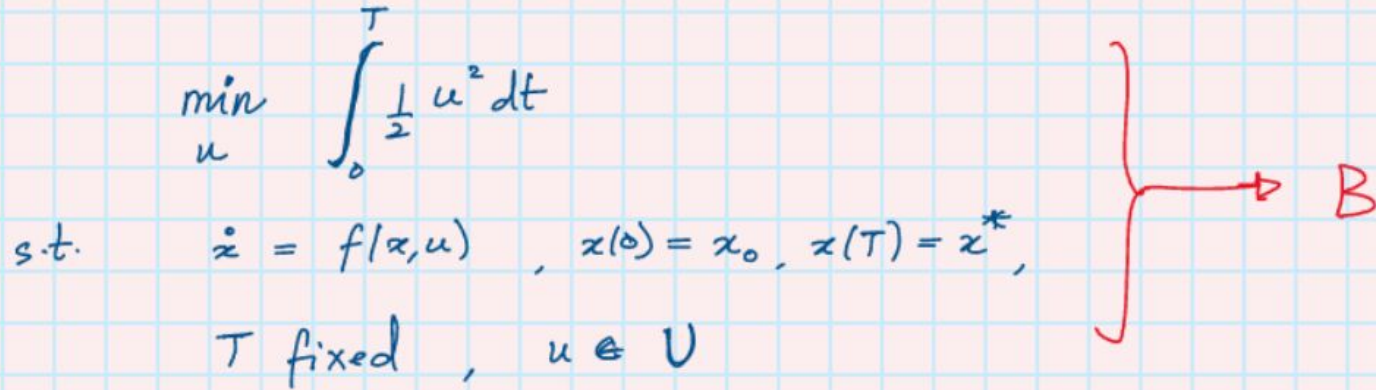 min_u ∫_0^T ½ u² dt
s.t. ẋ = f(x,u) , x(0) = x₀ , x(T) = x* ,
B
T fixed , u ∈ U